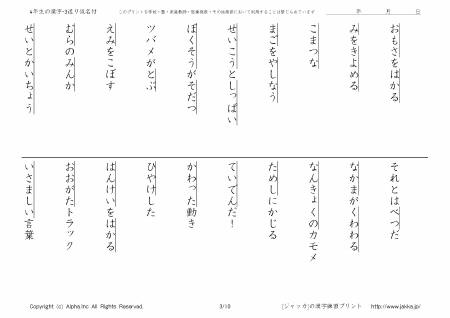 4年生の漢字-3送り仮名付
このプリントを学校・塾・家庭教師・医療機関・その他施設において利用することは禁じられています
年 月 日
おもさをはかる
みをきよめる
こまつな
まごをやしなう
せいこうとしっぱい
ぼくそうがそだつ
ツバメがとぶ
えみをこぼす
むらのみんか
せいとかいちょう
それとはべつだ
なかまがくわわる
なんきょくのカモメ
ためしにかじる
ていてんだ!
かわった動き
ひやけした
はんけいをはかる
おおがたトラック
いさましい言葉
Copyright (c) Alpha.Inc All Rights Reserved.
3/10
[ジャッカ]の漢字練習プリント http://www.jakka.jp/